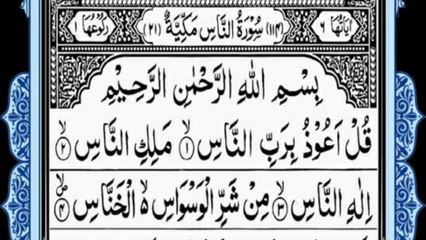 اٰیَاتُهَا ٦ (١١٤) سُوْرَةُ النَّاسِ مَكِّیَّةٌ (٢١) رُكُوْعُهَا
بِسْمِ اللهِ الرَّحْمٰنِ الرَّحِیْمِ
قُلْ اَعُوْذُ بِرَبِّ النَّاسِ ۙ﴿١﴾ مَلِكِ النَّاسِ ۙ﴿٢﴾
اِلٰهِ النَّاسِ ۙ﴿٣﴾ مِنْ شَرِّ الْوَسْوَاسِ ۙ۬ الْخَنَّاسِ ۪ۙ﴿٤﴾